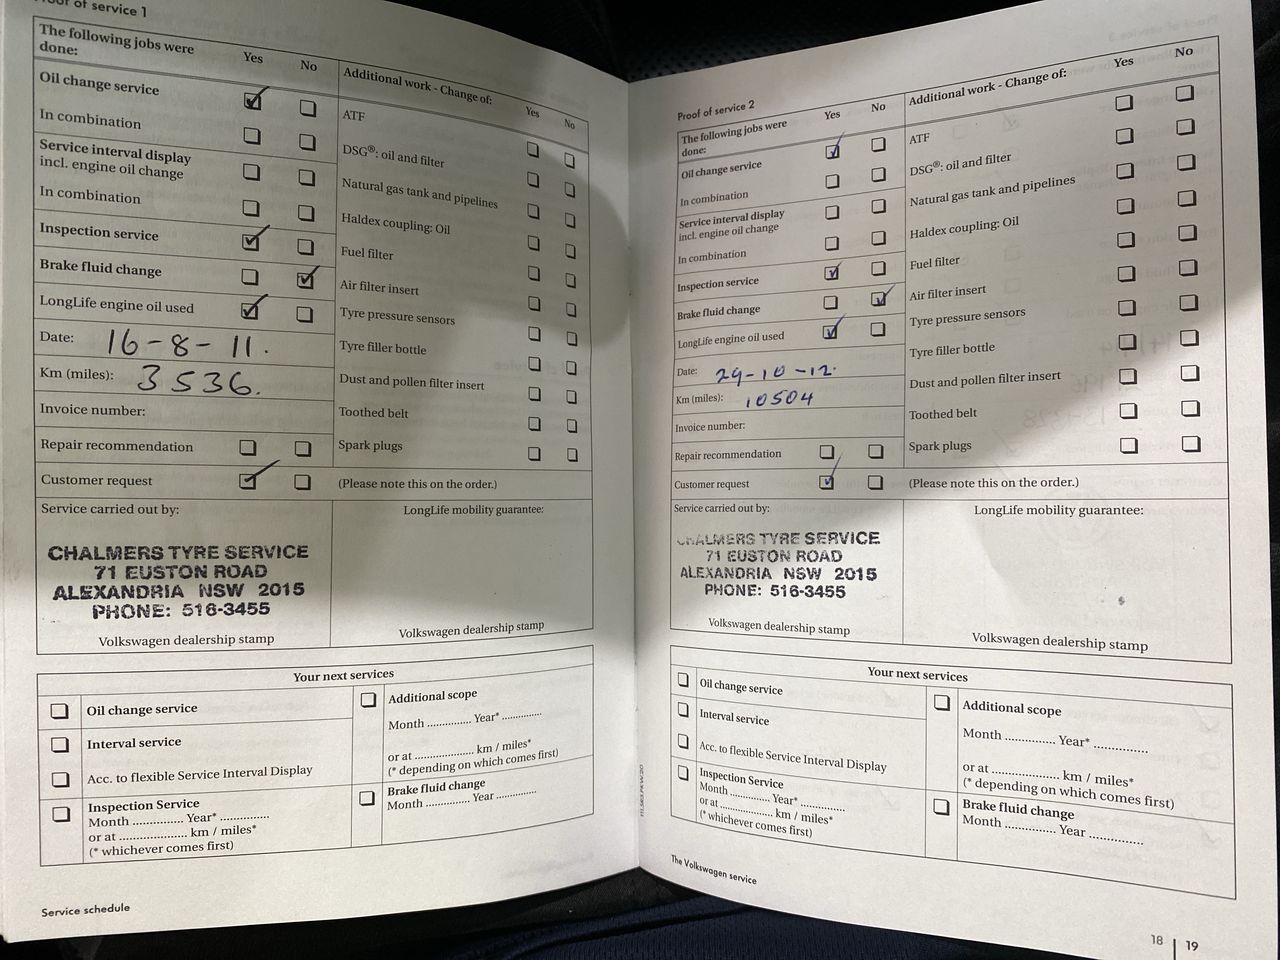 Proof of service 1
The following jobs were done:
Yes
No
Oil change service
In combination
Service interval display
incl. engine oil change
In combination
Inspection service
Brake fluid change
LongLife engine oil used
Date: 16-8-11.
Km (miles): 3536.
Invoice number:
Repair recommendation
Customer request
Additional work - Change of:
Yes
No
ATF
DSG®: oil and filter
Natural gas tank and pipelines
Haldex coupling: Oil
Fuel filter
Air filter insert
Tyre pressure sensors
Tyre filler bottle
Dust and pollen filter insert
Toothed belt
Spark plugs
(Please note this on the order.)
Service carried out by:
CHALMERS TYRE SERVICE
71 EUSTON ROAD
ALEXANDRIA NSW 2015
PHONE: 516-3455
Volkswagen dealership stamp
LongLife mobility guarantee:
Volkswagen dealership stamp
Your next services
Oil change service
Interval service
Acc. to flexible Service Interval Display
Inspection Service
Month ............. Year* .............
or at .................... km / miles*
(* whichever comes first)
Additional scope
Month ............. Year* .............
or at .................... km / miles*
(* depending on which comes first)
Brake fluid change
Month ............. Year .............
Service schedule
Proof of service 2
The following jobs were
done:
Yes
No
Oil change service
In combination
Service interval display
incl. engine oil change
In combination
Inspection service
Brake fluid change
LongLife engine oil used
Date: 29-10-12.
Km (miles): 10504
Invoice number:
Repair recommendation
Customer request
Additional work - Change of:
Yes
No
ATF
DSG®: oil and filter
Natural gas tank and pipelines
Haldex coupling: Oil
Fuel filter
Air filter insert
Tyre pressure sensors
Tyre filler bottle
Dust and pollen filter insert
Toothed belt
Spark plugs
(Please note this on the order.)
Service carried out by:
CHALMERS TYRE SERVICE
71 EUSTON ROAD
ALEXANDRIA NSW 2015
PHONE: 516-3455
Volkswagen dealership stamp
LongLife mobility guarantee:
Volkswagen dealership stamp
Your next services
Oil change service
Interval service
Acc. to flexible Service Interval Display
Inspection Service
Month ............. Year* .............
or at .................... km / miles*
(* whichever comes first)
Additional scope
Month ............. Year* .............
or at .................... km / miles*
(* depending on which comes first)
Brake fluid change
Month ............. Year .............
The Volkswagen service
18 | 19